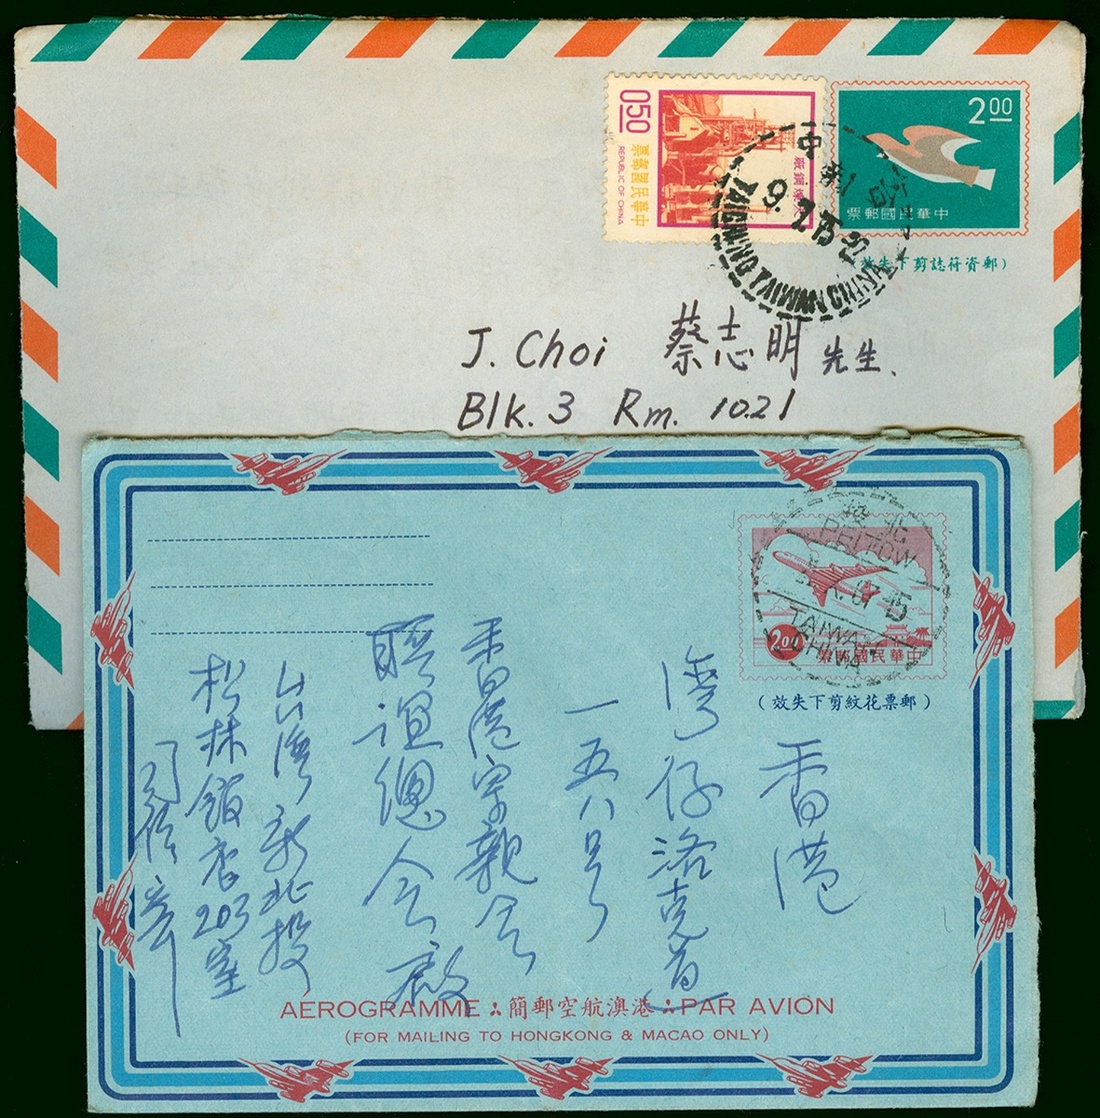 0.50
中華民國郵票
REPUBLIC OF CHINA
2.00
中華民國郵票
(郵資符誌剪下失效)
TAICHUNG TAIWAN CHINA
J. Choi 蔡志明先生.
Blk. 3 Rm. 1021
北投
PEITOW
TAIWAN
CHINA
2.00
中華民國郵票
(郵票花紋剪下失效)
香港
灣仔洛克道
一五八号
香港宗親会
聯誼總会啟
台灣新北投
松林飯店203室
AÉROGRAMME ∴ 港澳航空郵簡 ∴ PAR AVION
(FOR MAILING TO HONGKONG & MACAO ONLY)